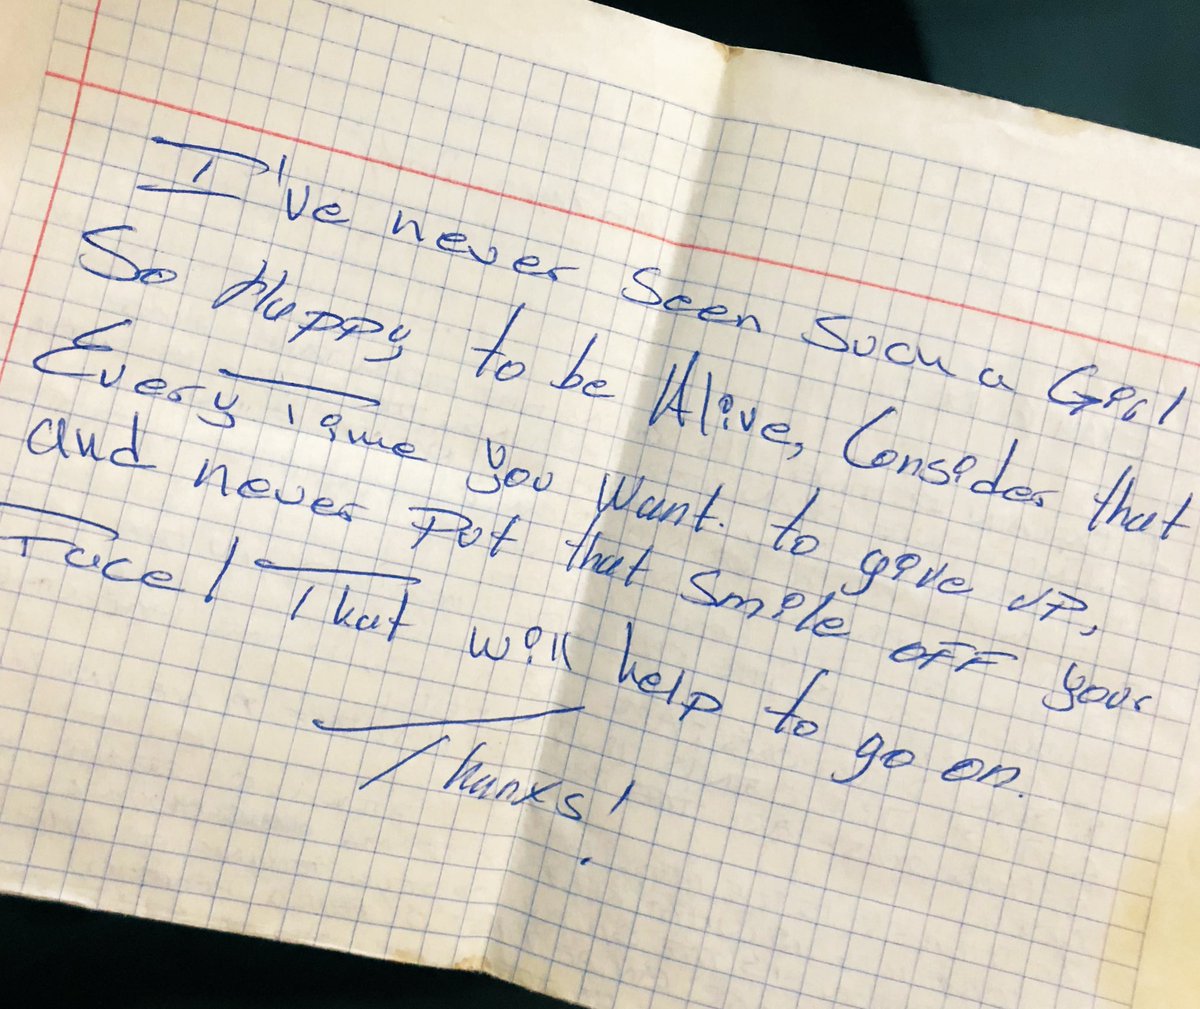 I've never Seen Such a Girl
So Happy to be Alive, Consider that
Every Time you Want to give up,
and never Put that Smile OFF your
Face! That will help to go on.
Thanxs!